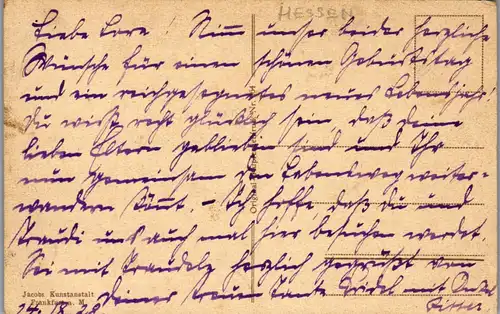 HESSEN
Liebe Lore! Nimm unser beider herzliche
Wünsche für einen schönen Geburtstag
und ein reichgesegnetes neues Lebensjahr!
Du wirst recht glücklich sein, daß deine
lieben Eltern geblieben sind und Ihr
nun gemeinsam den Lebensweg weiter-
wandern könnt. – Ich hoffe, daß du und
Traudi uns auch mal hier besuchen werdet.
Sei mit Traudely herzlich gegrüßt von
Deiner treuen Tante Gridel mit Onkel
Jacobs Kunstanstalt
Frankfurt a. M.